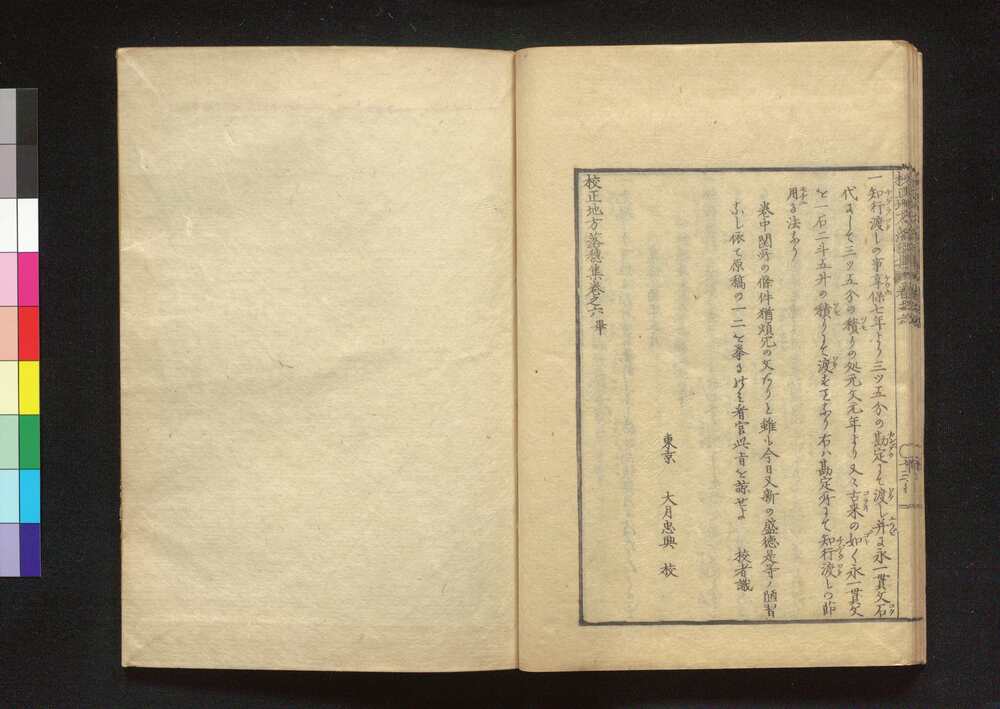 一知行渡しの事享保七年より三ツ五分の勘定にて渡し并に永一貫文石
代にして三ツ五分の積りの処元文元年より又々古来の如く永一貫文
を一石二斗五升の積りにて渡すなり右ハ勘定所にて知行渡しの節
用る法なり
巻中関所の條件猶煩冗の文なりと雖も今日又新の盛徳是等ノ陋習
なし依て原稿の一二を挙るのミ看官此旨を諒せよ 校者識
東京 大月忠興 校
校正地方落穂集巻之六畢